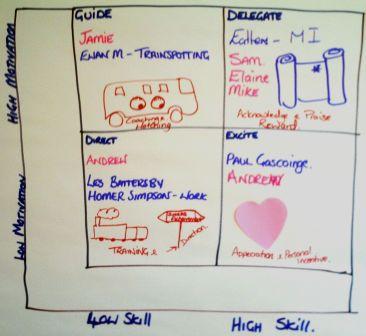 GUIDE
JAMIE
EWAN M - TRAINSPOTTING
Coaching &
Mentoring
DELEGATE
Ethan - MI
SAM.
Elaine
MIKE
Acknowledge & Praise
Reward.
HIGH MOTIVATION
DIRECT
ANDREW
LES BATTERSBY
HOMER SIMPSON - WORK
TRAINING &
Direction.
EXCITE
PAUL GASCOINGE.
ANDREW
Appreciation & Personal
incentive.
LOW MOTIVATION
LOW SKILL
HIGH SKILL.